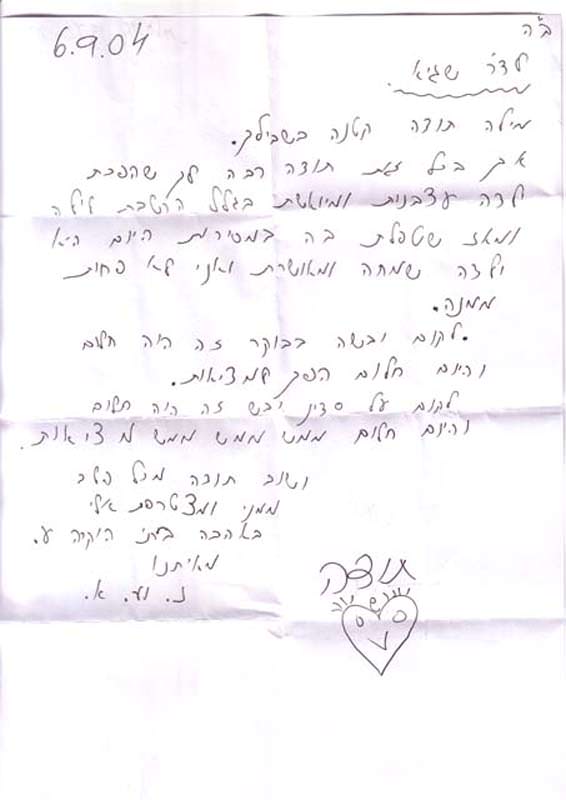 ב"ה
6.9.04
לדר' שגיא
מילה תודה קטנה בשבילך.
אך בכל זאת תודה רבה לך שהפכת
ילדה עצבנית ומיואשת בגלל הרטבת לילה
ומאז שטפלת בה במסירות היום היא
ילדה שמחה ומאושרת ואני לא פחות
ממנה.
לקום יבשה בבוקר זה היה חלום
והיום חלום הפך למציאות.
לקום על סדין יבש זה היה חלום
והיום חלום ממש ממש ממש מציאות.
ושוב תודה מכל הלב
ממני ומצטרפת אלי
באהבה בתי היקרה ע.
מאיתנו
נ. וע. א.
תודה